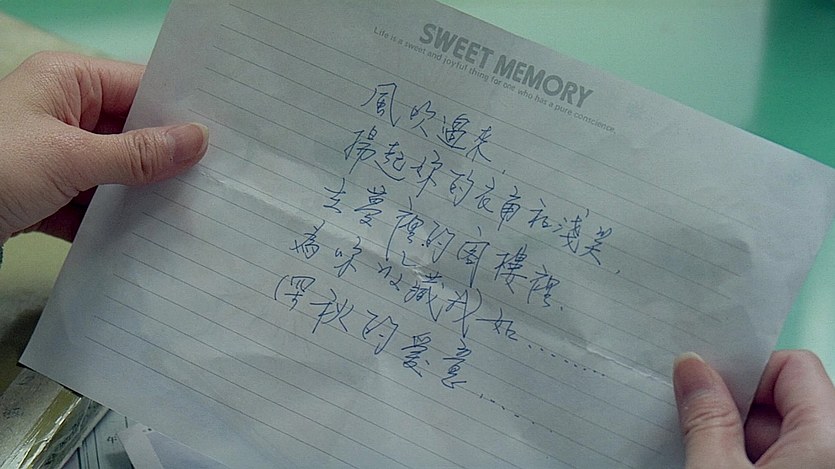 SWEET MEMORY
Life is a sweet and joyful thing for one who has a pure conscience.
風吹過來,
揚起你的衣角和淺笑,
去夢裡的閣樓裡,
為你收藏我如........
深秋的愛意........